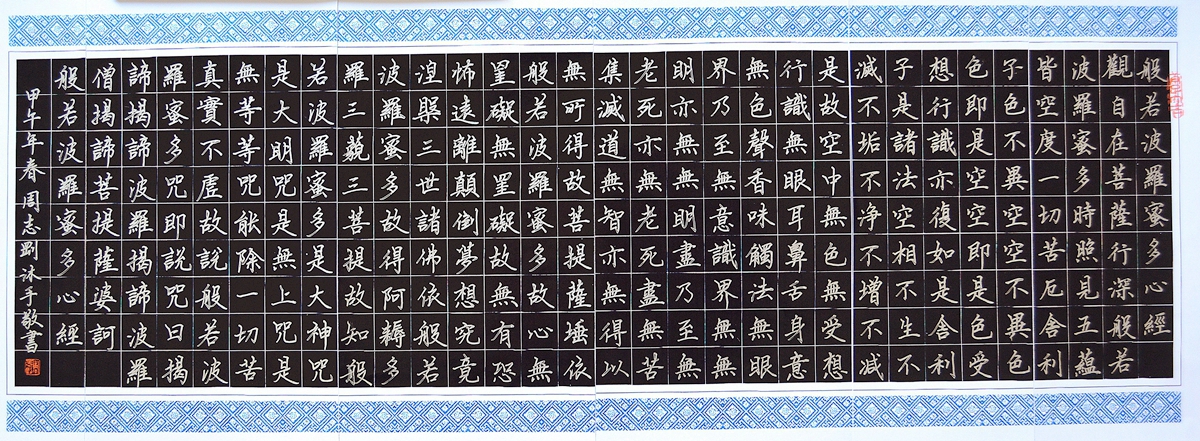 般若波羅蜜多心經
觀自在菩薩行深般若
波羅蜜多時照見五蘊
皆空度一切苦厄舍利
子色不異空空不異色
色即是空空即是色受
想行識亦復如是舍利
子是諸法空相不生不
滅不垢不净不增不減
是故空中無色無受想
行識無眼耳鼻舌身意
無色聲香味觸法無眼
界乃至無意識界無無
明亦無無明盡乃至無
老死亦無老死盡無苦
集滅道無智亦無得以
無所得故菩提薩埵依
般若波羅蜜多故心無
罣礙無罣礙故無有恐
怖遠離顛倒夢想究竟
涅槃三世諸佛依般若
波羅蜜多故得阿耨多
羅三藐三菩提故知般
若波羅蜜多是大神咒
是大明咒是無上咒是
無等等咒能除一切苦
真實不虛故說般若波
羅蜜多咒即說咒曰揭
諦揭諦波羅揭諦波羅
僧揭諦菩提薩婆訶
般若波羅蜜多心經
甲午年春周志剛沐手敬書